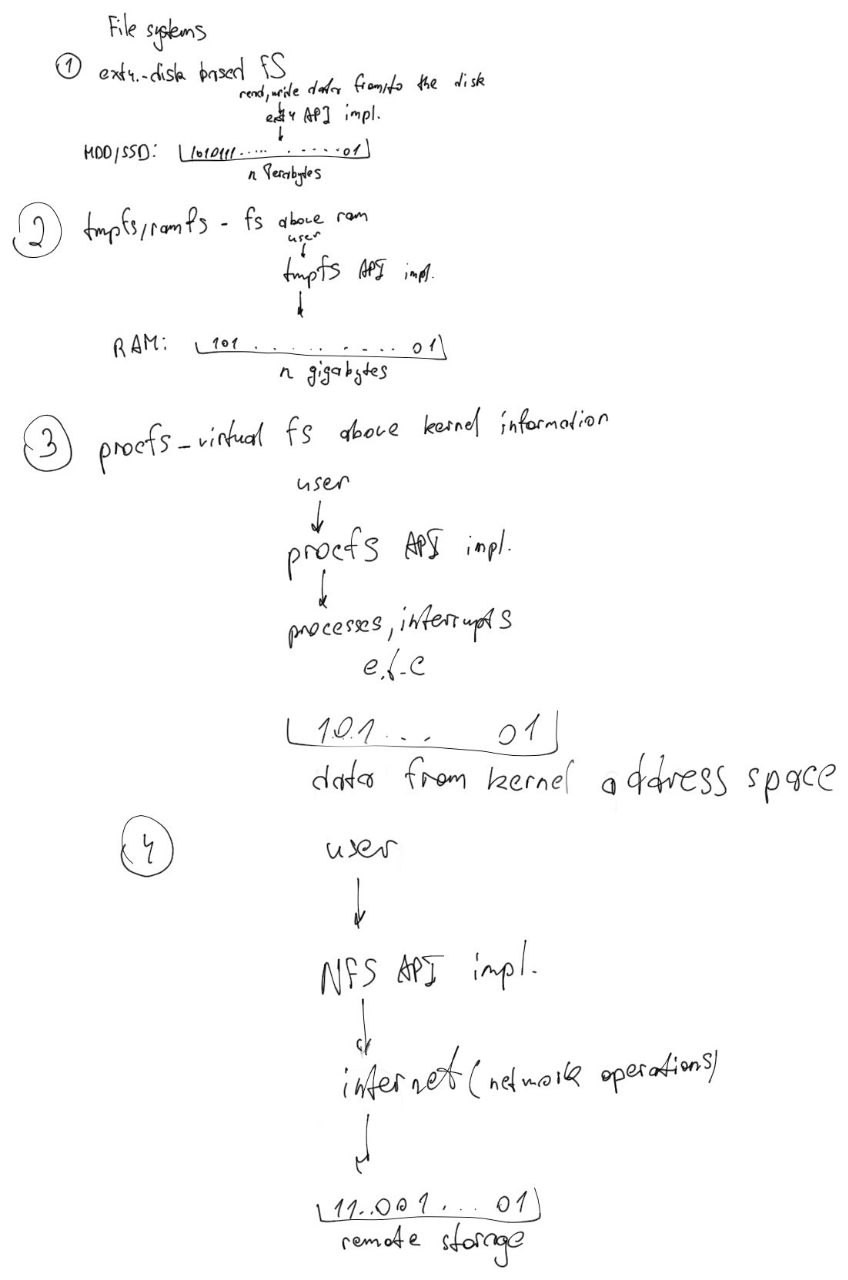 File systems
① ext4.-disk based fS
read, write data from/to the disk
ext4 API impl.
HDD/SSD: 1010111..... ......01
n Terabytes
2 tmpfs/ramfs - fs above ram
user
tmpfs API impl.
RAM: 101 . . . . . . . . . . 01
n gigabytes
3 procfs - virtual fs above kernel information
user
procfs API impl.
processes, interrupts
e.t.c
1.0.1... 01
data from kernel address space
4 user
NFS API impl.
internet (network operations)
11..001... 01
remote storage